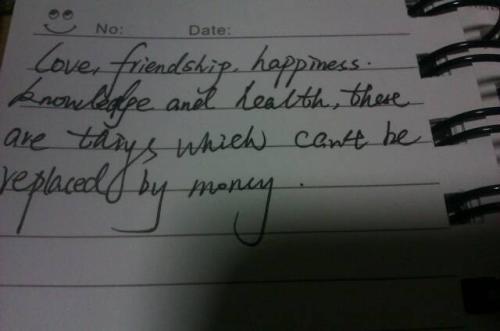 No: Date:
love, friendship, happiness.
knowledge and health, these
are things which can't be
replaced by money.